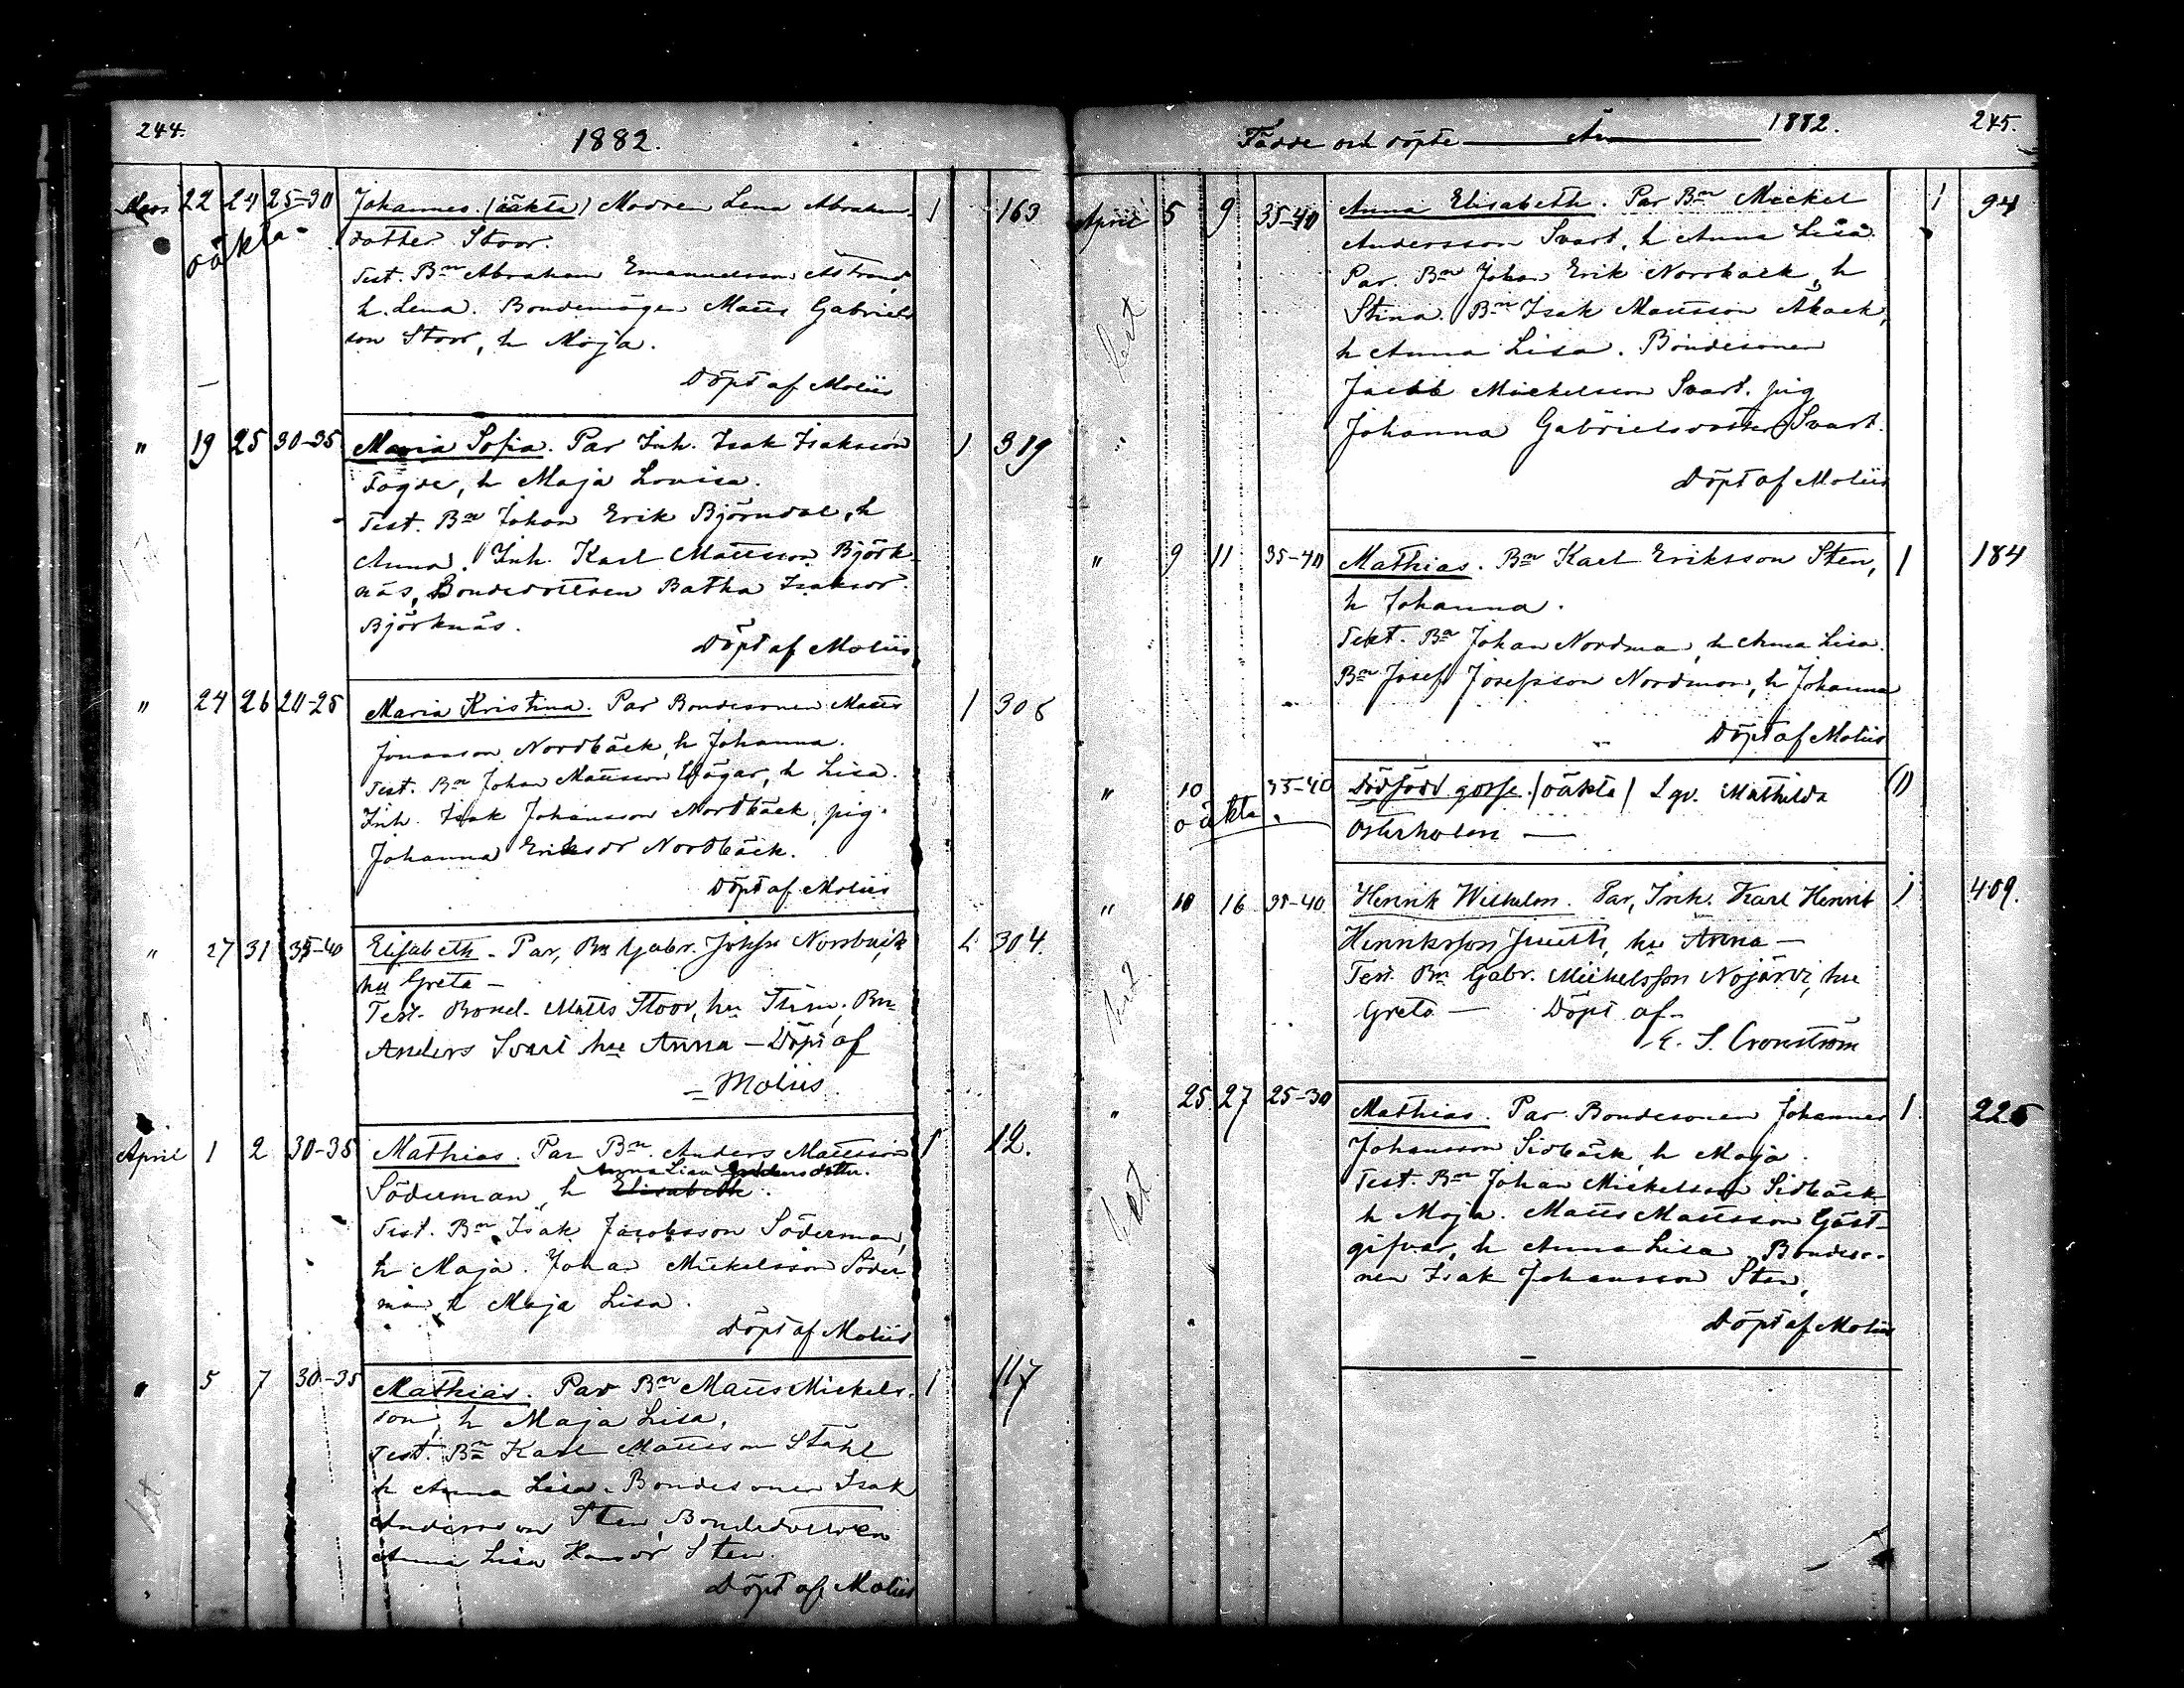 244.
1882.
Mars 22 24 25-30 Johannes. (oäkta) Modren Lena Abraham- 1 163
oäkta dotter Stoor.
Test. Bn Abraham Emanuelsson Åstrand,
h. Lena. Bondemågen Matts Gabriels
son Stoor, h Maja.
Döpt af Molius
" 19 25 30-35 Maria Sofia. Par Inh. Isak Isaksson 1 319
Fogde, h Maja Lovisa.
Test. Bn Johan Erik Björndal, h
Anna. Inh. Karl Mattsson Björk-
näs, Bondedottren Isaksdr
Björknäs.
Döpt af Molius
" 24 26 20-25 Maria Kristina. Par Bondesonen Matts 1 305
Jonasson Nordbäck, h Johanna.
Test. Bn Johan Mattsson h Lisa.
Inh. Isak Johansson Nordbäck, pig.
Johanna Eriksdr Nordbäck.
Döpt af Molius
" 27 31 35-40 Elisabeth - Par, Bn Gabr. Norrback, 1 304.
hu Greta -
Test. Bond. Matts Stoor, hu Bn
Anders Svart hu Anna - Döpt af
- Molius
April 1 2 30-35 Mathias. Par Bn. Anders Mattsson 1 12.
Anna Lisa Andersdotter.
Söderman, h Elisabeth.
Test. Bn Isak Jacobsson Söderman,
h Maja. Johan Mickelsson Söder
man h Maja Lisa.
Döpt af Molius
" 5 7 30-35 Mathias. Par Bn Matts Mickels- 1 117
son, h Maja Lisa,
Test. Bn Karl Mattsson Ståhl
h Anna Lisa. Bondesonen Isak
Andersson Sten, Bondedottren
Anna Lisa Sten.
Döpt af Molius
Födde och döpte År 1882. 245.
April 5 9 35-40 Anna Elisabeth. Par Bn Mickel 1 94
Andersson Svart, h Anna Lisa.
Par. Bn Johan Erik Norrback, h
Stina. Bn Isak Mattsson
h Anna Lisa. Bondesonen
Jacob Mickelsson Svart. pig
Johanna Gabrielsdotter Svart.
Döpt af Molius
" 9 11 35-40 Mathias. Bn Karl Eriksson Sten, 1 184
h Johanna.
Test. Bn Johan Nordman, h Anna Lisa.
Bn Josef Josefsson Nordman, h Johanna
Döpt af Molius
" 10 35-40 Dödfödd gosse. (oäkta) Lgv. Mathilda (1)
oäkta. Österholm -
" 10 16 35-40 Henrik Wilhelm. Par, Inh. Karl Henrik 1 409.
Henriksson Smith, hu Anna -
Test. Bn Gabr. Mickelsson Nojärvi, hu
Greta - Döpt af -
E. S. Cronström
" 25 27 25-30 Mathias. Par Bondesonen Johannes 1. 225
Johansson Sidbäck, h Maja.
Test. Bn Johan Mickelsson Sidbäck
h Maja. Matts Mattsson Gäst-
gifvar, h Anna Lisa. Bondeso-
nen Isak Johansson Sten,
Döpt af Molius